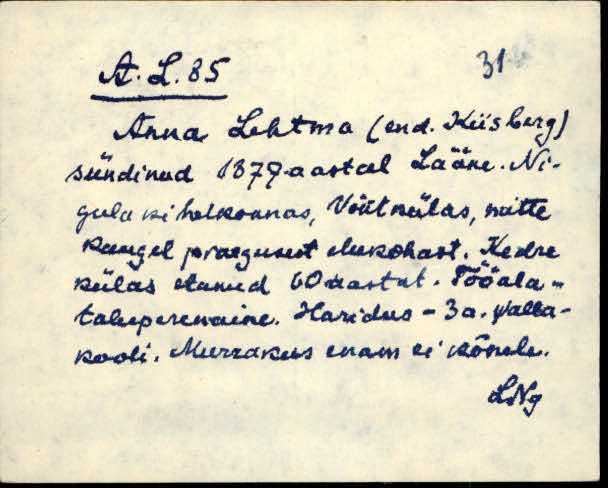 A. L. 85
31
Anna Lehtma (end. Kiisberg)
sündinud 1879 aastal Lääne-Ni-
gula kihelkonnas, Võntkülas, mitte
kaugel praegusest elukohast. Kedre
külas elanud 60 aastat. Tööala -
taluperenaine. Haridus - 3 a. valla-
kooli. Murrakus enam ei kõnele.
LNg